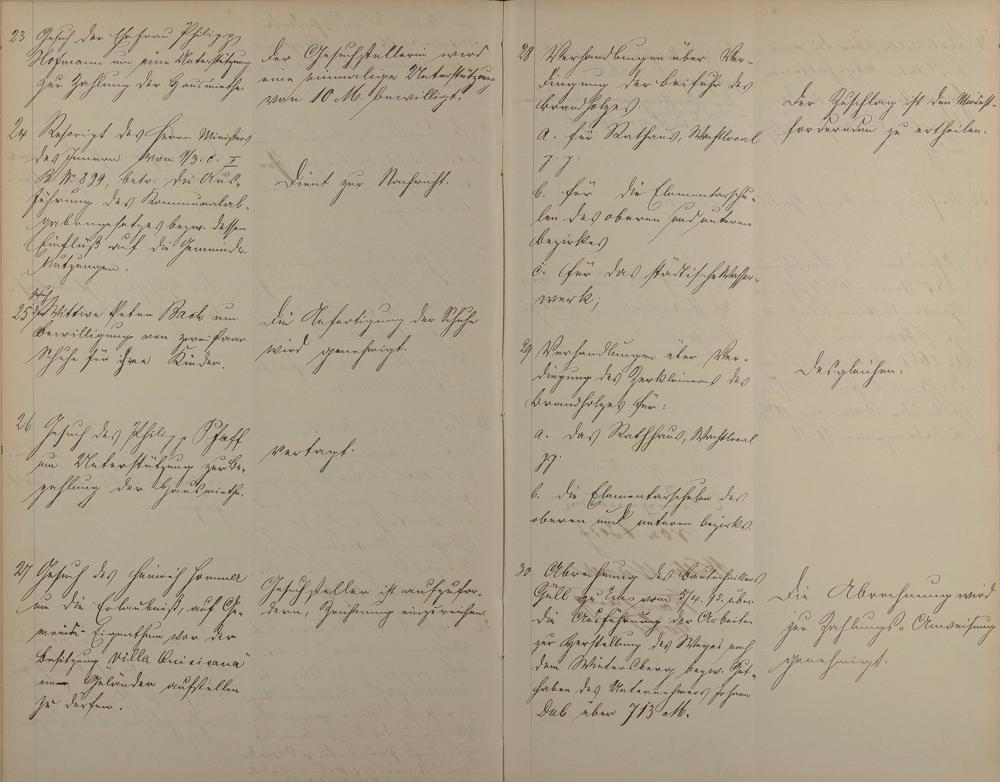 23 Gesuch der Ehefrau Philipp
Hofmann um eine Unterstützung
zur Zahlung der Hausmiethe.
Der Gesuchstellerin wird
eine einmalige Unterstützung
von 10 M. bewilligt.
24 Rescript des Herrn Ministers
des Innern vom 9/3. c. I
B No 899, betr. die Aus-
führung des Kommunalab-
gabengesetzes bezw. dessen
Einfluß auf die Gemeinde-
Nutzungen.
Dient zur Nachricht.
25 Gesuch der Wittwe Peter Back um
Bewilligung von zwei Paar
Schuhe für ihre Kinder.
Die Anfertigung der Schuhe
wird genehmigt.
26 Gesuch des Philipp Pfaff
um Unterstützung zur Be-
zahlung der Hausmiethe.
vertagt.
27 Gesuch des Heinrich Hommer
um die Erlaubniß, auf Ge-
meinde-Eigenthum vor der
Besitzung "Villa
ein Geländer aufstellen
zu dürfen.
Gesuchsteller ist aufzufor-
dern, Zeichnung einzureichen.
28 Verhandlungen über Ver-
dingung der Beifuhr des
Brandholzes.
a. für Rathhaus, Wachtlocal
p. p.
b. für die Elementarschu-
len des oberen und unteren
Bezirkes
c. für das städtische Wasser-
werk;
Der Zuschlag ist den Mindest-
fordernden zu ertheilen.
29 Verhandlungen über Ver-
dingung des Zerkleinerns des
Brandholzes für:
a. das Rathhaus, Wachtlocal
pp.
b. die Elementarschulen des
oberen und unteren Bezirks.
Desgleichen.
30 Abrechnung des Bautechnikers
Güll zu Ems vom 5/4. 95. über
die Ausführung der Arbeiten
zur Herstellung des Weges nach
dem Wintersberg, bezw. Gut-
haben des Unternehmers Johann
Dab über 713 M.
Die Abrechnung wird
zur Zahlungs-Anweisung
genehmigt.